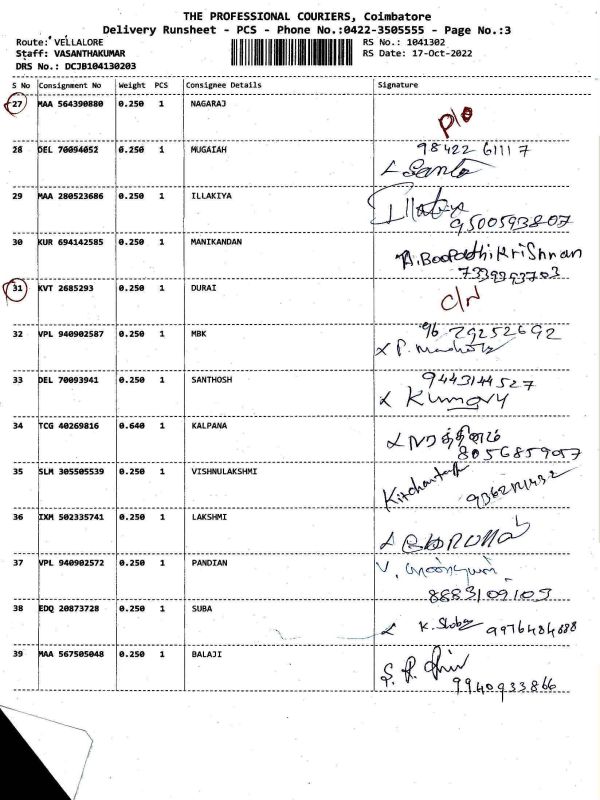 THE PROFESSIONAL COURIERS, Coimbatore
Delivery Runsheet - PCS - Phone No.:0422-3505555 - Page No.:3
Route: VELLALORE RS No.: 1041302
Staff: VASANTHAKUMAR RS Date: 17-Oct-2022
DRS No.: DCJB104130203
S No Consignment No Weight PCS Consignee Details Signature
27 MAA 564390880 0.250 1 NAGARAJ
P/O
28 DEL 70094052 0.250 1 MUGAIAH 98422 61117
29 MAA 280523686 0.250 1 ILLAKIYA Illakiya
9500593807
30 KUR 694142585 0.250 1 MANIKANDAN A.BoopathiKrishnan
7339393703
31 KVT 2685293 0.250 1 DURAI C/N
32 VPL 940902587 0.250 1 MBK 96 29252692
33 DEL 70093941 0.250 1 SANTHOSH 9443144527
34 TCG 40269816 0.640 1 KALPANA
8056855907
35 SLM 305505539 0.250 1 VISHNULAKSHMI
36 IXM 502335741 0.250 1 LAKSHMI
37 VPL 940902572 0.250 1 PANDIAN
8883109109
38 EDQ 20873728 0.250 1 SUBA 9976484688
39 MAA 567505048 0.250 1 BALAJI
9940933866